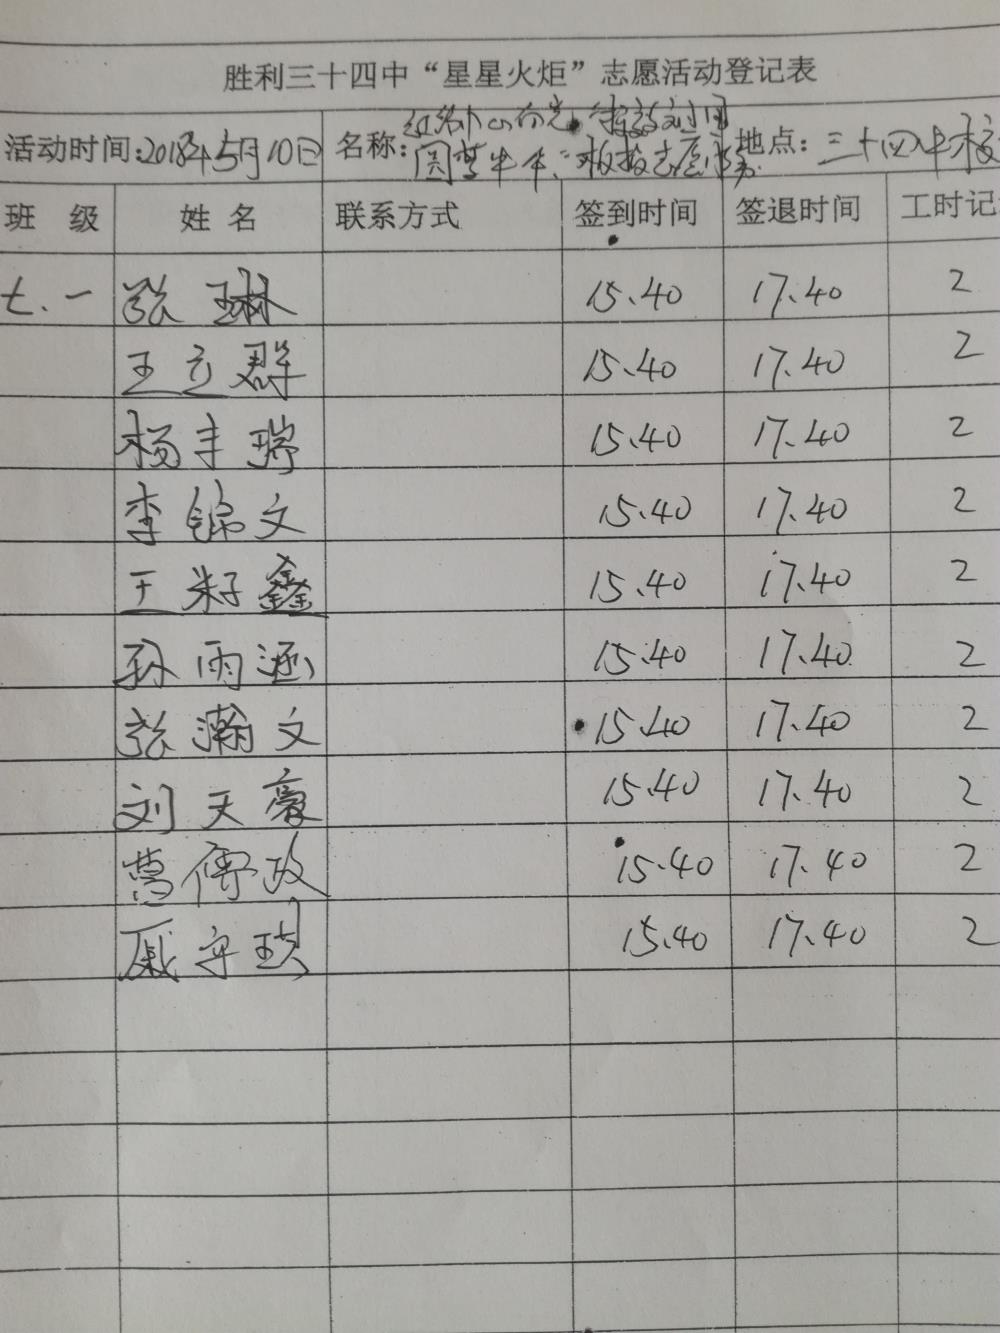 胜利三十四中“星星火炬”志愿活动登记表
活动时间:2018年5月10日 名称: 地点:三十四中校
班 级 姓 名 联系方式 签到时间 签退时间 工时记
七.一 张琳 15.40 17.40 2
王立群 15.40 17.40 2
杨丰瑞 15.40 17.40 2
李锦文 15.40 17.40 2
王籽鑫 15.40 17.40 2
孙雨涵 15.40 17.40 2
张瀚文 15.40 17.40 2
刘天豪 15.40 17.40 2
葛傅政 15.40 17.40 2
戚守琪 15.40 17.40 2